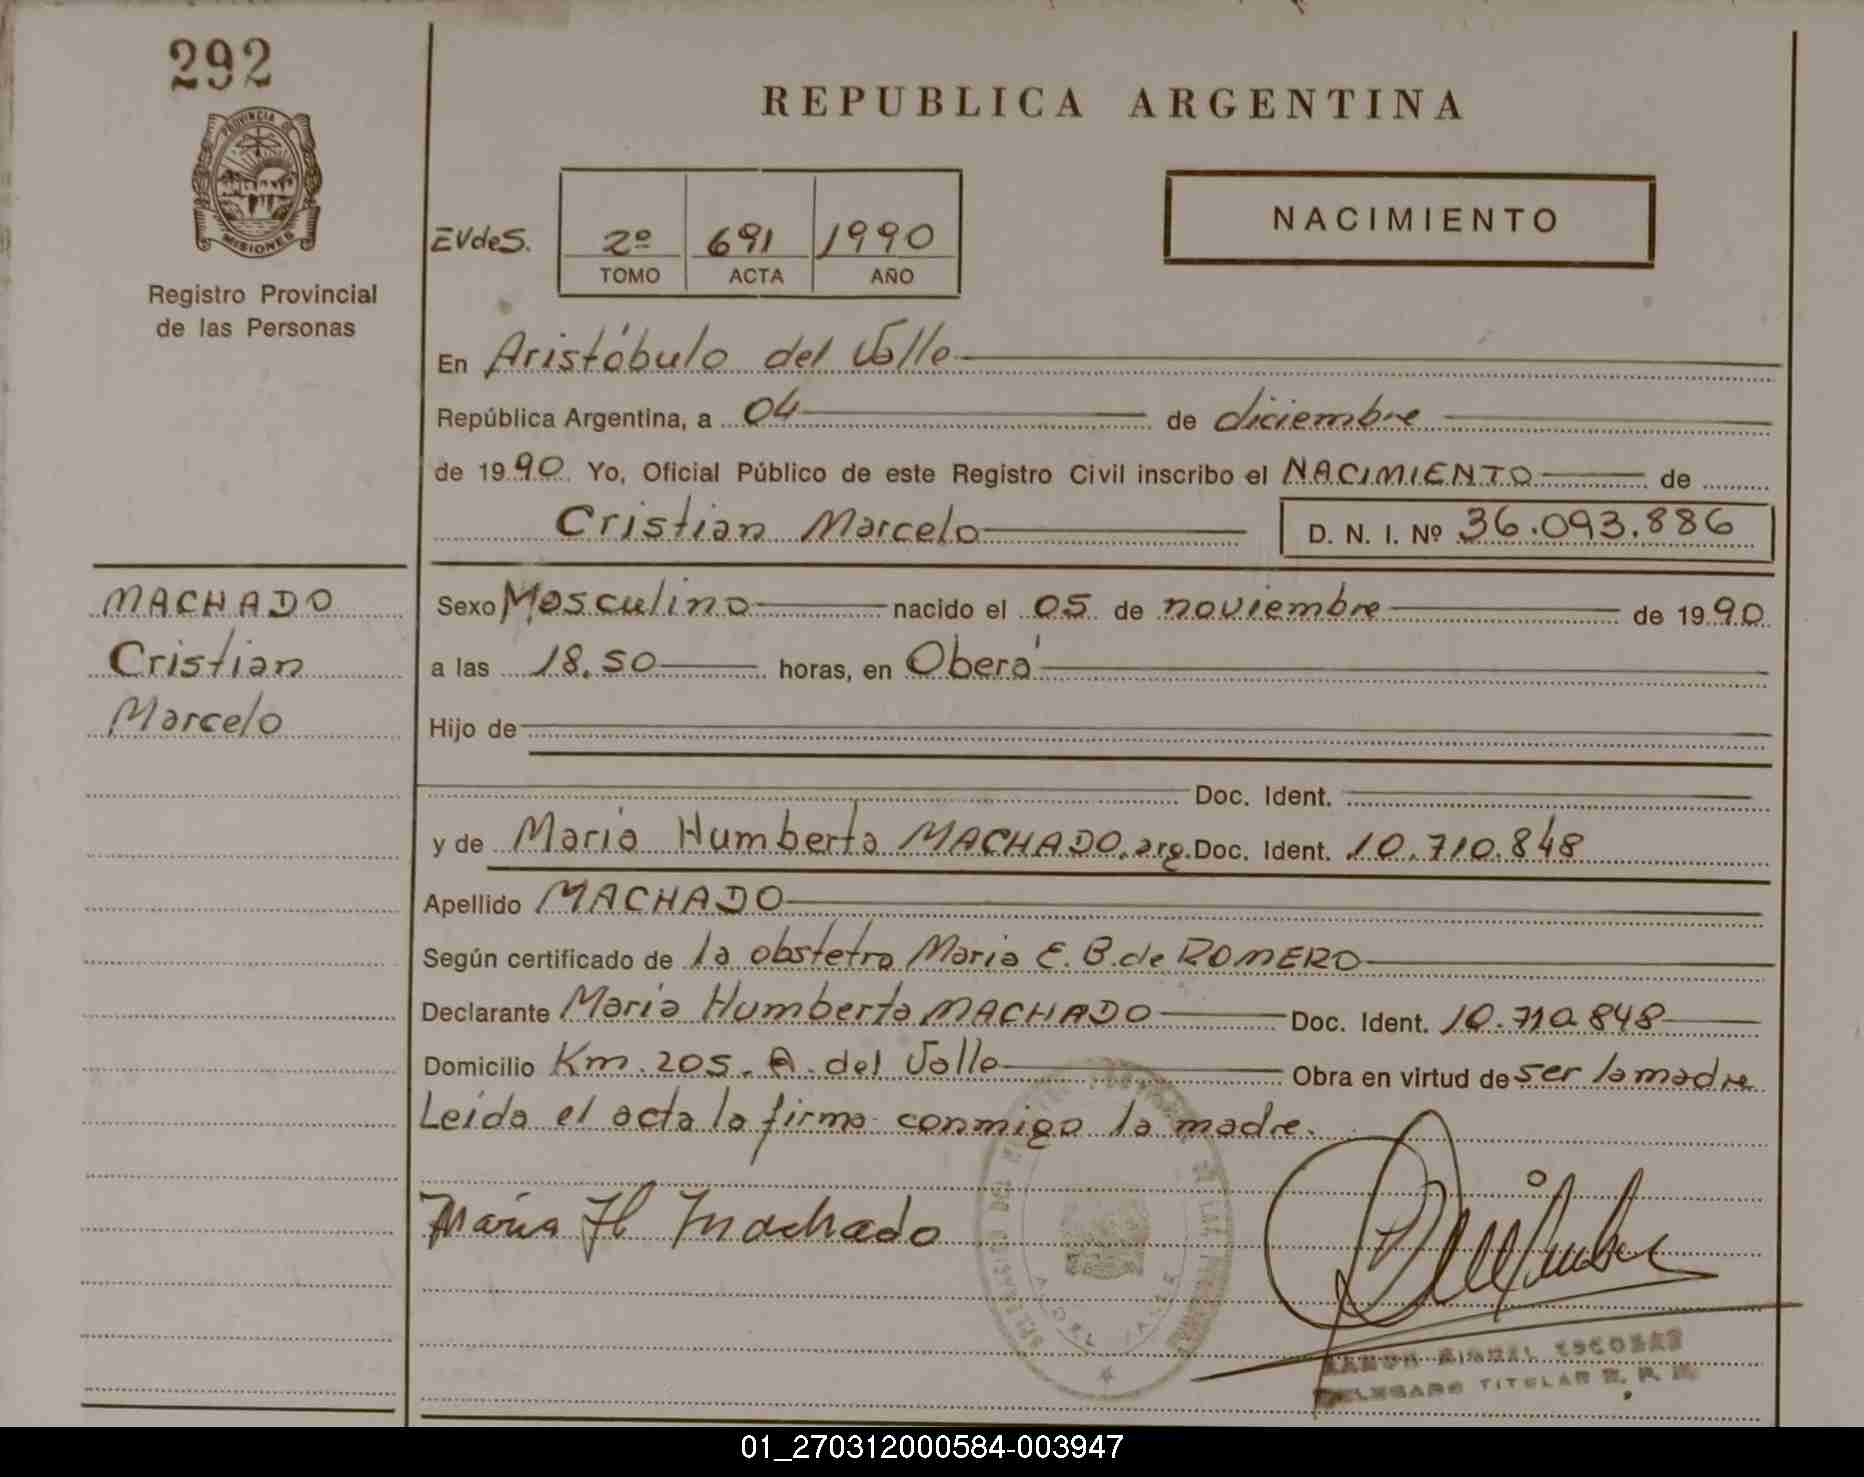 292
PROVINCIA DE
MISIONES
Registro Provincial
de las Personas
MACHADO
Cristian
Marcelo
REPUBLICA ARGENTINA
NACIMIENTO
EVdeS. 2º 691 1990
TOMO ACTA AÑO
En Aristóbulo del Valle
República Argentina, a 04 de diciembre
de 1990 Yo, Oficial Público de este Registro Civil inscribo el NACIMIENTO de
Cristian Marcelo D. N. I. Nº 36.093.886
Sexo Masculino nacido el 05 de noviembre de 1990
a las 18.50 horas, en Oberá
Hijo de
Doc. Ident.
y de Maria Humberta MACHADO, arg. Doc. Ident. 10.710.848
Apellido MACHADO
Según certificado de la obstetra Maria E. B. de ROMERO
Declarante Maria Humberta MACHADO Doc. Ident. 10.710.848
Domicilio Km. 205. A. del Valle Obra en virtud de ser la madre
Leida el acta la firma conmigo la madre.
María H Machado
ESCOBAR
TITULAR
01_270312000584-003947